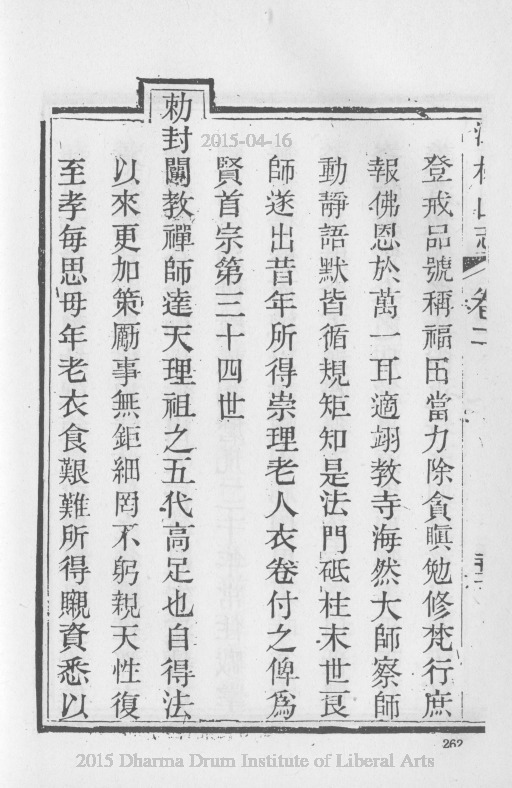 登戒品號稱福田當力除貪瞋勉修梵行庶
報佛恩於萬一耳適翊教寺海然大師察師
動靜語默皆循規矩知是法門砥柱末世良
師遂出昔年所得崇理老人衣卷付之俾爲
賢首宗第三十四世
勅封闡教禪師達天理祖之五代高足也自得法
以來更加策勵事無鉅細罔不躬親天性復
至孝每思母年老衣食艱難所得嚫資悉以
2015-04-16
262
2015 Dharma Drum Institute of Liberal Arts